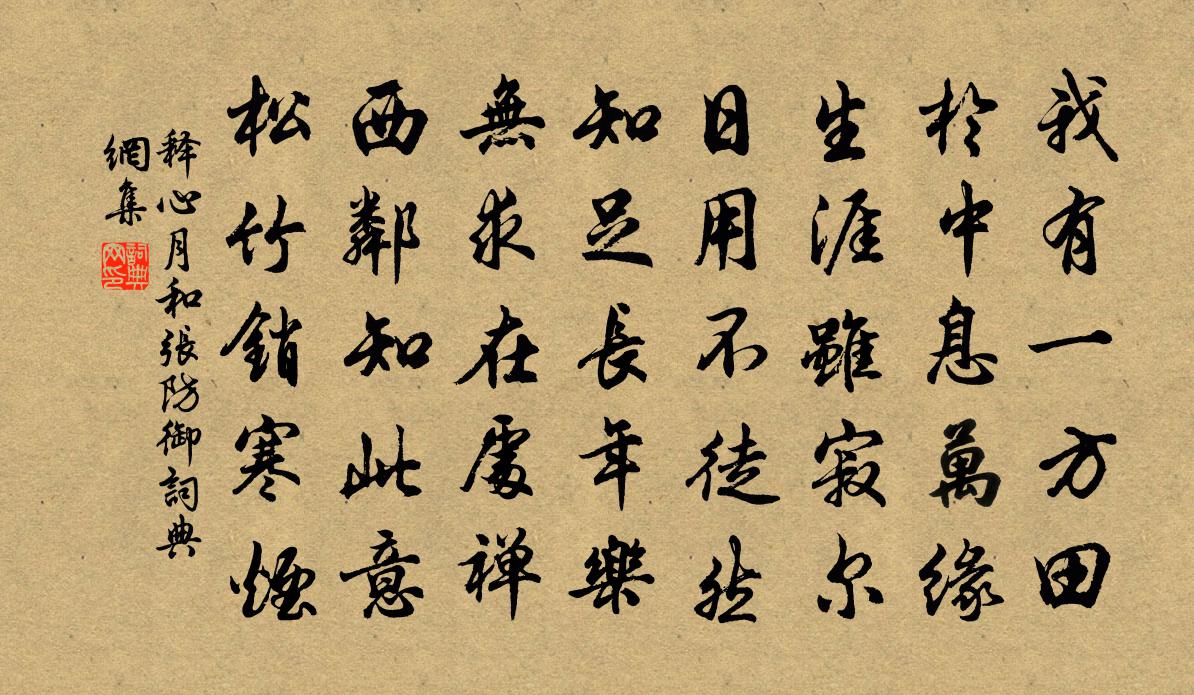 我有一方田
於中息萬緣
生涯雖寂尔
日用不徒然
知足長年樂
無求在處禅
西鄰知此意
松竹銷寒煙
释心月和張防御詞典
網集
詞典
网印